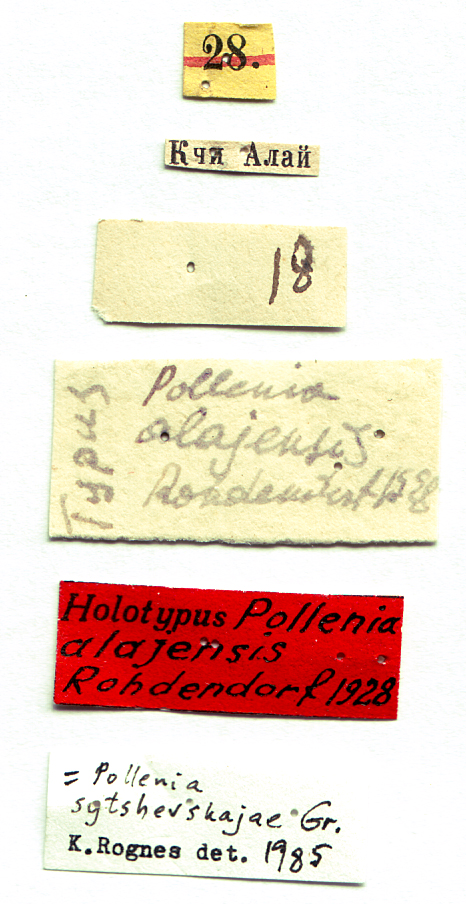 28.
Кчя Алай
18
Typus
Pollenia
alajensis
Rohdendorf 1928
Holotypus Pollenia
alajensis
Rohdendorf 1928
= Pollenia
sytshevskajae Gr.
K.Rognes det. 1985